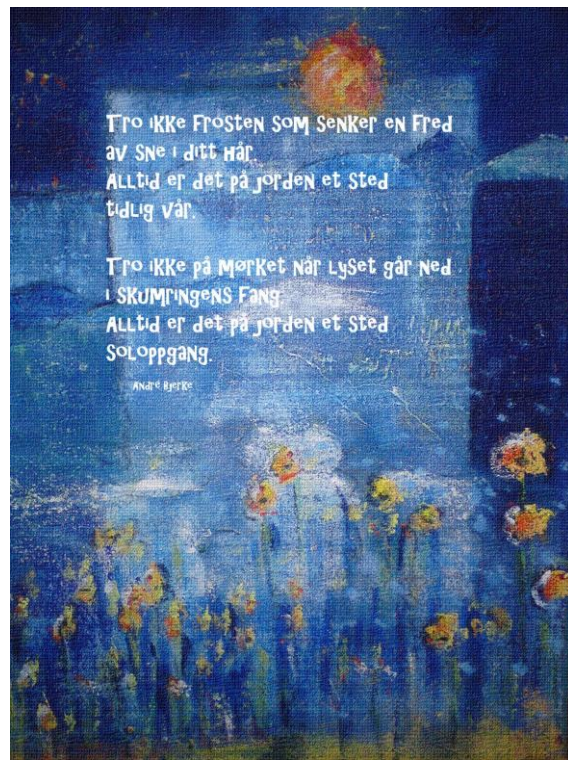 Tro ikke Frosten som senker en Fred
av sne i ditt Hår.
Alltid er det på jorden et sted
tidlig vår.
Tro ikke på Mørket når Lyset går ned
i skumringens Fang.
Alltid er det på jorden et sted
soloppgang.
André Bjerke